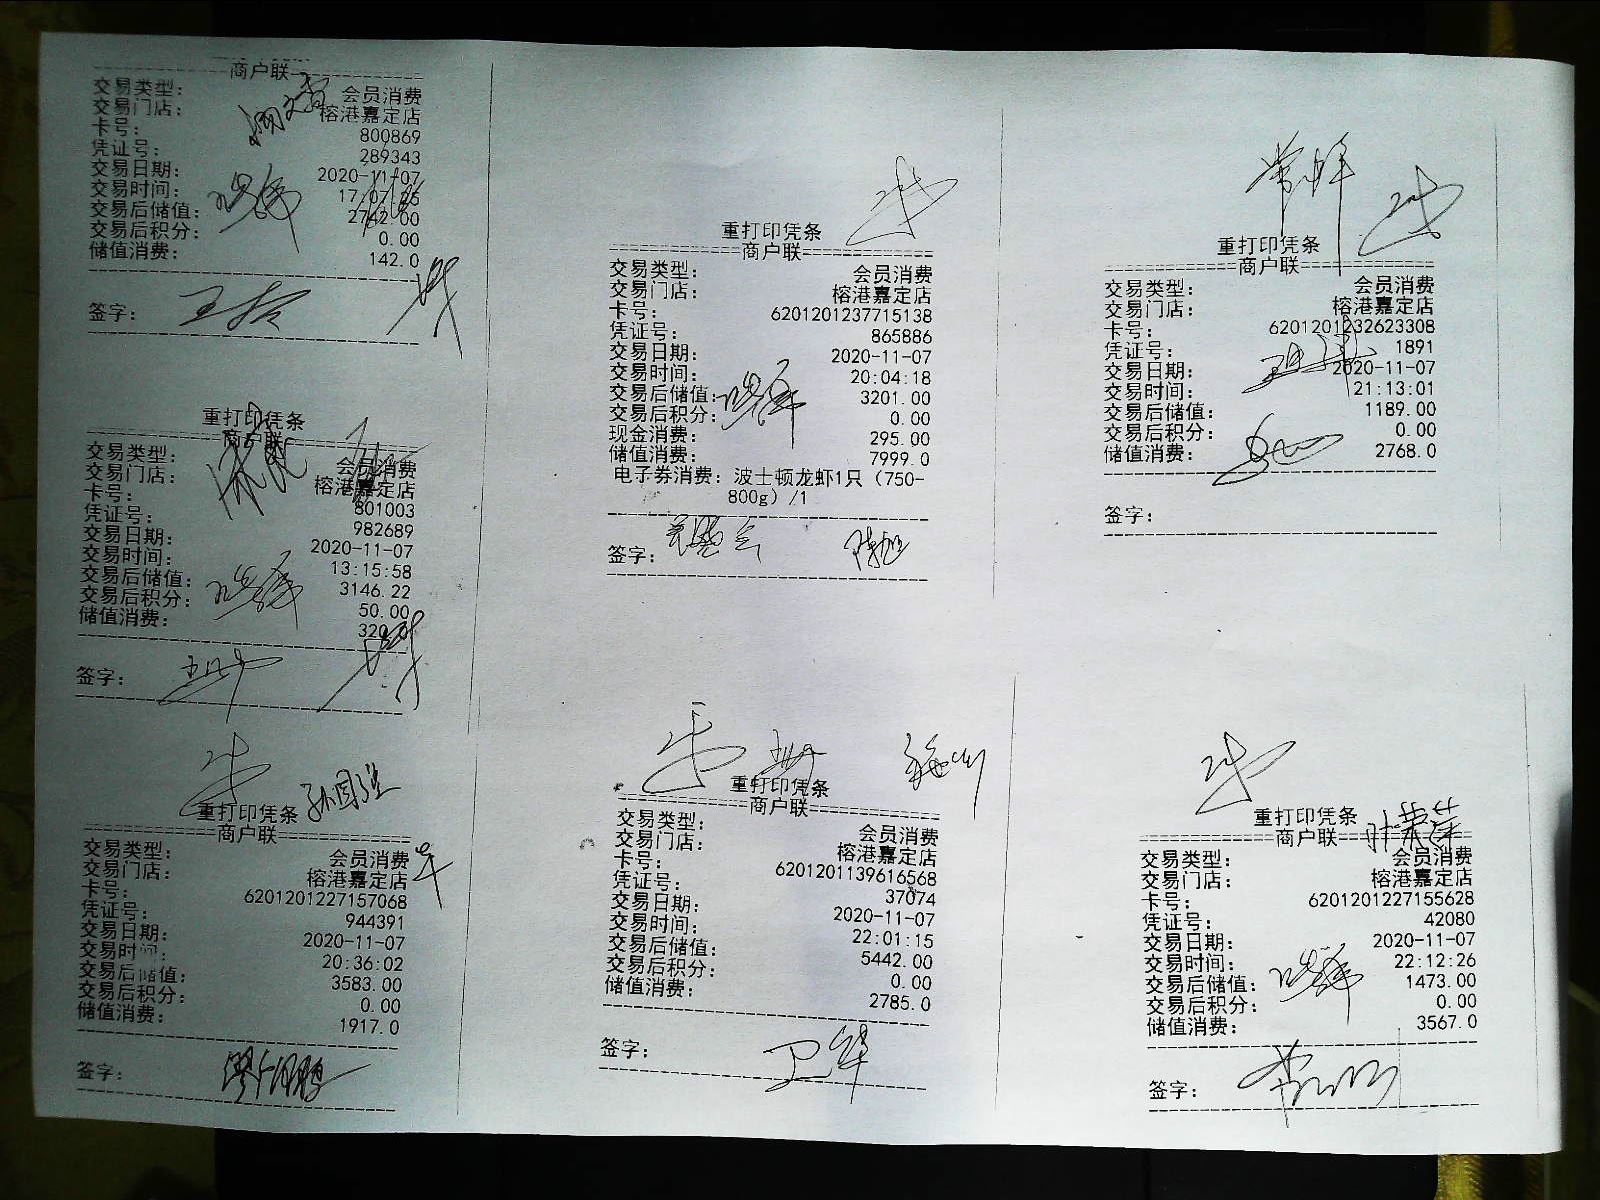 商户联
交易类型： 会员消费
交易门店： 榕港嘉定店
卡号： 800869
凭证号： 289343
交易日期： 2020-11-07
交易时间： 17:07:25
交易后储值： 2742.00
交易后积分： 0.00
储值消费： 142.0
签字：
重打印凭条
商户联
交易类型： 会员消费
交易门店： 榕港嘉定店
卡号： 801003
凭证号： 982689
交易日期： 2020-11-07
交易时间： 13:15:58
交易后储值： 3146.22
交易后积分： 50.00
储值消费： 320
签字：
重打印凭条
孙国强
商户联
交易类型： 会员消费
交易门店： 榕港嘉定店
卡号： 6201201227157068
凭证号： 944391
交易日期： 2020-11-07
交易时间： 20:36:02
交易后储值： 3583.00
交易后积分： 0.00
储值消费： 1917.0
签字：
重打印凭条
商户联
交易类型： 会员消费
交易门店： 榕港嘉定店
卡号： 6201201237715138
凭证号： 865886
交易日期： 2020-11-07
交易时间： 20:04:18
交易后储值： 3201.00
交易后积分： 0.00
现金消费： 295.00
储值消费： 7999.0
电子券消费：波士顿龙虾1只（750-
800g）/1
签字：
重打印凭条
商户联
交易类型： 会员消费
交易门店： 榕港嘉定店
卡号： 6201201139616568
凭证号： 37074
交易日期： 2020-11-07
交易时间： 22:01:15
交易后储值： 5442.00
交易后积分： 0.00
储值消费： 2785.0
签字： 卫华
重打印凭条
商户联
交易类型： 会员消费
交易门店： 榕港嘉定店
卡号： 6201201232623308
凭证号： 1891
交易日期： 2020-11-07
交易时间： 21:13:01
交易后储值： 1189.00
交易后积分： 0.00
储值消费： 2768.0
签字：
重打印凭条
商户联
交易类型： 会员消费
交易门店： 榕港嘉定店
卡号： 6201201227155628
凭证号： 42080
交易日期： 2020-11-07
交易时间： 22:12:26
交易后储值： 1473.00
交易后积分： 0.00
储值消费： 3567.0
签字：